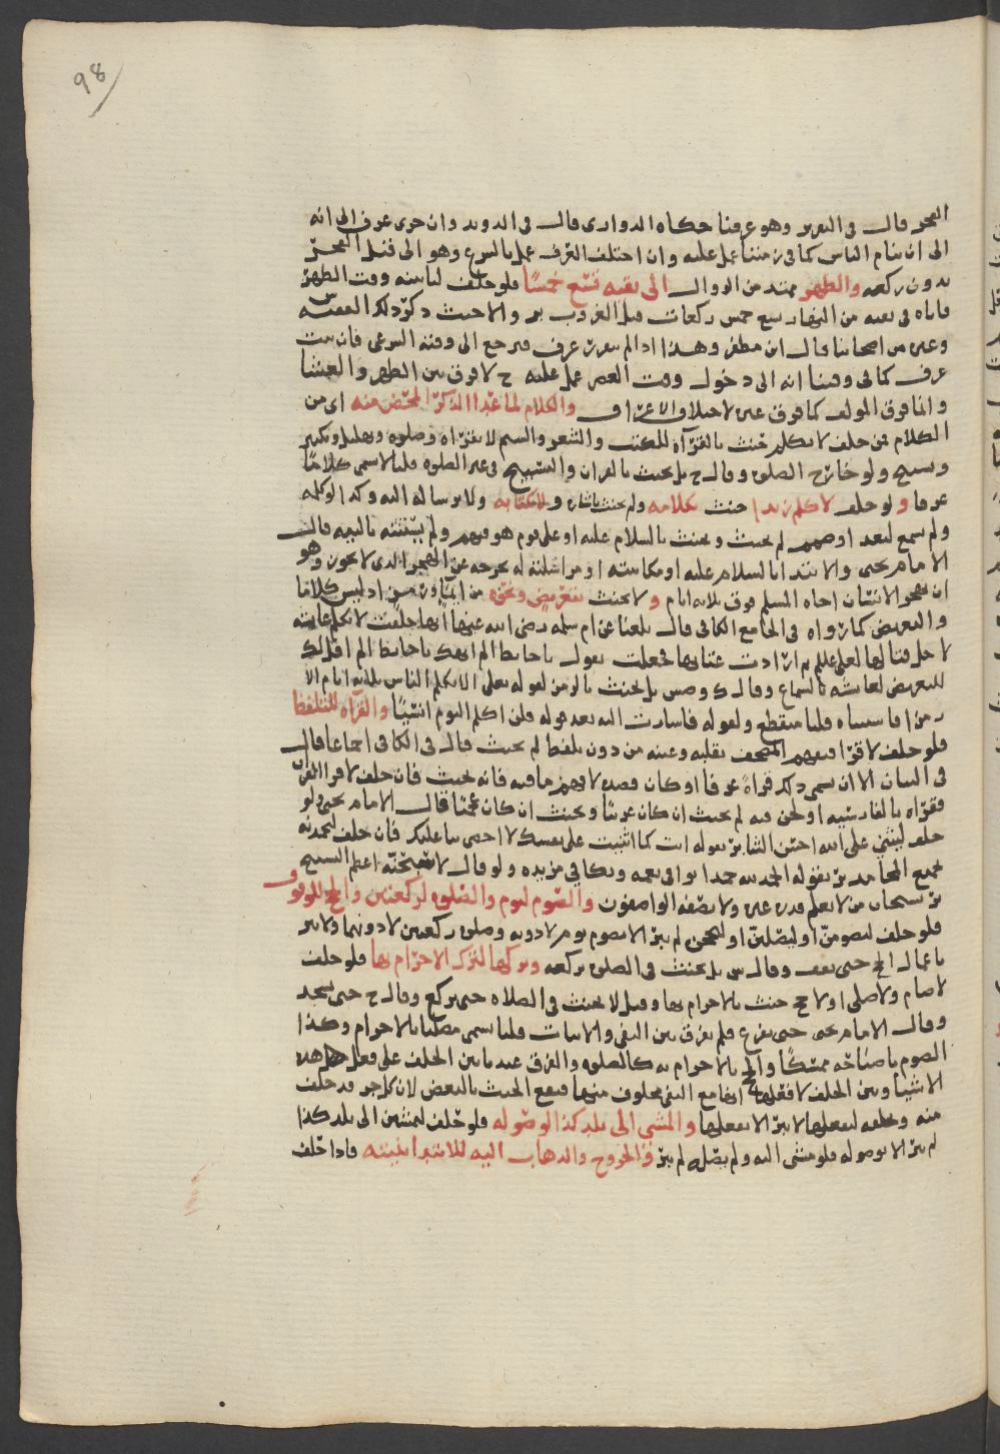 98
الفجر قال في التقرير وهو عرفنا حكاه الدواري قال في الدويد وان جرى عرف الى انه
الى ان ينام الناس كما في زمننا عمل عليه وان اختلف العرف عمل بالشرع وهو الى قبل الفجر
بدون ركعه والظهر ممتد من الزوال الى بقيه تسع خمسًا فلو حلف لياتينه وقت الظهر
فاتاه في بقيه من النهار تسع خمس ركعات قبل الغروب بر والا حنث ذكر ذلك الفقيه س
وغيره من اصحابنا قال ابن مظفر وهذا اذا لم يتقرر عرف فيرجع الى وقته الشرعي فان ثبت
عرف كما في وقتنا انه الى دخول وقت العصر عمل عليه ح لا فرق بين الظهر والعشا
وانما فرق المولف كما فرق غيره لاختلاف الاعراف والكلام لما عدا الذكر المحض منه اي من
الكلام فمن حلف لا تكلم حنث بالقراة للكتب والشعر والشتم لا بقراه وصلوه وتهليل وتكبير
وتسبيح ولو خارج الصلوه وقال ح بل يحنث بالقران والتسبيح في غير الصلوه قلنا لا يسمى كلامًا
عرفا ولو حلف لا كلم زيدا حنث بكلامه ولم يحنث باشاره ولا كتابه ولا برساله اليه وكذا لو كلمه
ولم يسمع لبعد او صمم لم يحنث ويحنث بالسلام عليه او على قوم هو فيهم ولم يستثنه بالنيه قال
الامام يحيى والابتدا بالسلام عليه او مكاتبته او مراسلته له يخرجه عن الهجر الذي لا يجوز وهو
ان يهجر الانسان اخاه المسلم فوق ثلاثه ايام ولا يحنث بتعريض ونحوه من ايما ورمز اذ ليس كلامًا
والتعريض كما رواه في الجامع الكافي قال بلغنا عن ام سلمه رضي الله عنها انها حلفت لا تكلم عايشه
لا حل قتالها لعلي عليلم ثم ارادت عتابها فجعلت تقول يا حايط الم انهك يا حايط الم اقل لك
للتعريض لعايشه بالسماع وقال ك وص ش بل يحنث بالرمز لقوله تعالى الا تكلم الناس ثلاثه ايام الا
رمزا فاستثناه قلنا منقطع ولقوله فاشارت اليه بعد قوله فلن اكلم اليوم انسيًا والقراه للتلفظ
فلو حلف لا قرا ففهم المصحف بقلبه وعينه من دون تلفظ لم يحنث قال في الكافي اجماعا قال
في البيان الا ان يسمى ذلك قراةً عرفا او كان قصده لا فهم ما فيه فانه يحنث فان حلف لا قرا القران
فقراه بالفارسيه او لحن فيه لم يحنث ان كان عربيًا ويحنث ان كان عجميًا قال الامام يحيى ولو
حلف ليثني على الله احسن الثنا بر بقوله انت كما اثنيت على نفسك لا احصي ثنا عليك فان حلف ليحمدنه
بجميع المحامد بر بقوله الحمد لله حمدا يوافي نعمه ويكافي مزيده ولو قال لاسبحنه اعظم التسبيح
بر بسبحان من لا يعلم قدره غيره ولا يصفه الواصفون والصوم ليوم والصلوه لركعتين والحج للوقوف
فلو حلف ليصومن او ليصلين او ليحجن لم يبر الا بصوم يوم لا دونه وصلوه ركعتين لا دونهما ولا يبر
باعمال الحج حتى يقف وقال ش بل يحنث في الصلوه بركعه وتركها لترك الاحرام بها فلو حلف
لا صام ولا صلى او لا حج حنث بالاحرام بها وقيل لا يحنث في الصلاه حتى يركع وقال ح حتى يسجد
وقال الامام يحيى حتى يفرغ فلم يفرق بين النفي والاثبات قلنا يسمى مصليًا بالاحرام وكذا
الصوم باصباحه ممسكًا والحج بالاحرام به كالصلوه والفرق عندنا بين الحلف على فعل هذه
الاشيا وبين الحلف لا فعلها انها مع النفي محلوف منها فيقع الحنث بالبعض لان كل جز قد حلف
منه وحلفه ليفعلها لا يبر الا بفعلها والمشي الى بلد كذا لوصوله فلو حلف ليمشين الى بلد كذا
لم يبر الا بوصوله فلو مشى اليه ولم يصله لم يبر والخروج والذهاب اليه للابتدا بنيته فاذا حلف